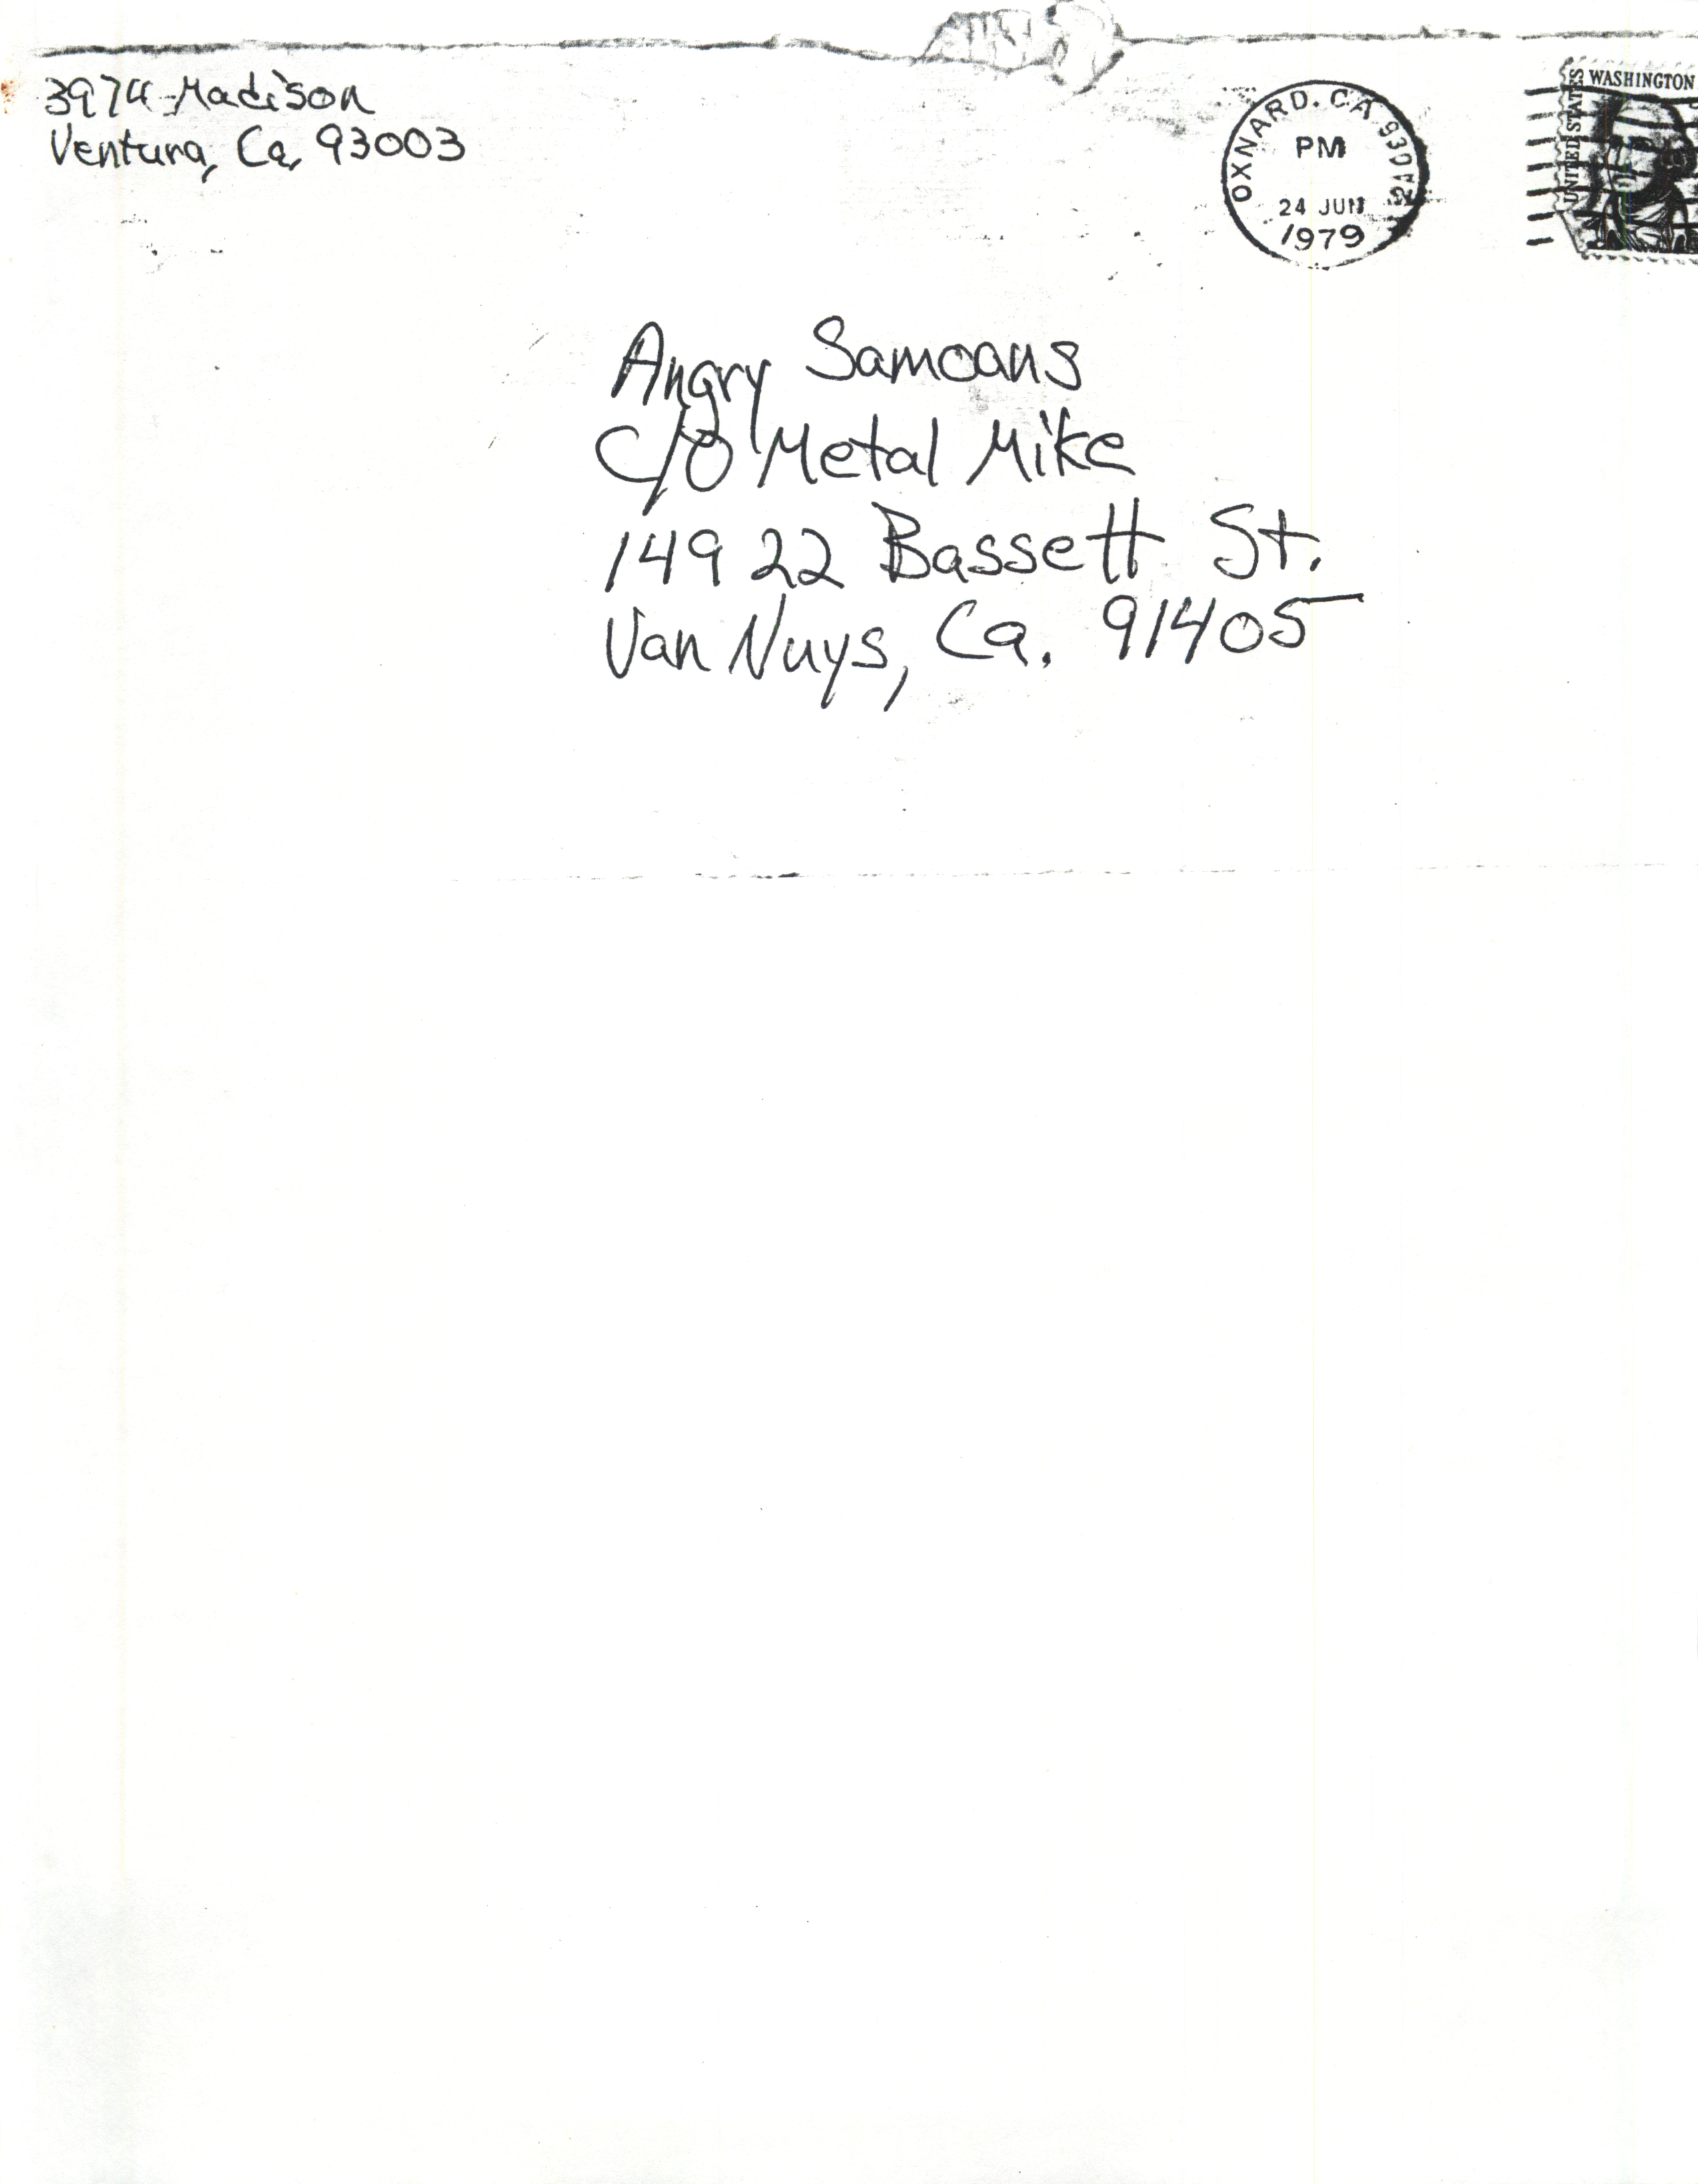 3974 Madison
Ventura, Ca, 93003
OXNARD. CA 930
PM
24 JUN
1979
UNITED STATES
WASHINGTON
Angry Samoans
C/O Metal Mike
14922 Bassett St.
Van Nuys, Ca. 91405